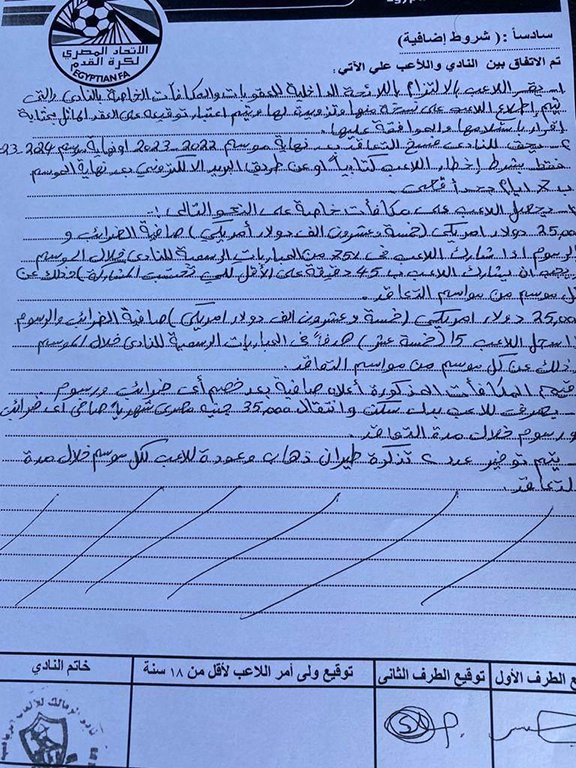 الاتحاد المصري
لكرة القدم
EGYPTIAN FA
سادساً : ( شروط إضافية)
تم الاتفاق بين النادي واللاعب علي الآتي:
١- يقر اللاعب بالالتزام باللائحة الداخلية للعقوبات والمكافآت الخاصة بالنادي والتى
يتم اطلاع اللاعب على نسخة منها وتزويده لها ويتم اعتبار توقيعه على العقد الماثل بمثابة
إقرار باستلامها والموافقة عليها.
٢- يحق للنادى فسخ التعاقد بنهاية موسم 2022-2023 او نهاية موسم 2024-23
فقط بشرط إخطار اللاعب كتابياً او عن طريق البريد الالكترونى بعد نهاية الموسم
ب أيام حد أقصى.
يحصل اللاعب على مكافآت خاصة على النحو التالى :-
25,000 دولار امريكي (خمسة وعشرون الف دولار أمريكي) صافية الضرائب و
الرسوم اذا شارك اللاعب فى 75% من المباريات الرسمية للنادى خلال الموسم
ويجب ان يشارك اللاعب ب 45 دقيقة على الأقل لكي تحتسب المشاركة) وذلك عن
كل موسم من مواسم التعاقد.
25,000 دولار امريكي (خمسة وعشرون الف دولار امريكي) صافية الضرائب والرسوم
اذا سجل اللاعب 15 (خمسة عشر) هدفاً فى المباريات الرسمية للنادى خلال الموسم
وذلك عن كل موسم من مواسم التعاقد.
المكافآت المذكورة أعلاه صافية بعد خصم أى ضرائب ورسوم
يصرف للاعب بدل سكن وانتقال 35,000 جنيه مصرى شهرياً صافى اى ضرائب
ورسوم خلال مدة التعاقد.
يتم توفير عدد ٢ تذكرة طيران ذهاب وعودة للاعب لكل موسم خلال مدة
التعاقد.
توقيع الطرف الأول
توقيع الطرف الثانى
توقيع ولى أمر اللاعب لأقل من ١٨ سنة
خاتم النادي
نادي الزمالك للألعاب الرياضية